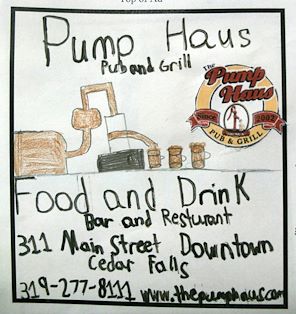 Top of Ad
Pump Haus
Pub and Grill
The
Pump
Haus
Since 2002
PUB & GRILL
Food and Drink
Bar and Resturant
311 Main Street Downtown
Cedar Falls
319-277-8111 www.thepumphaus.com